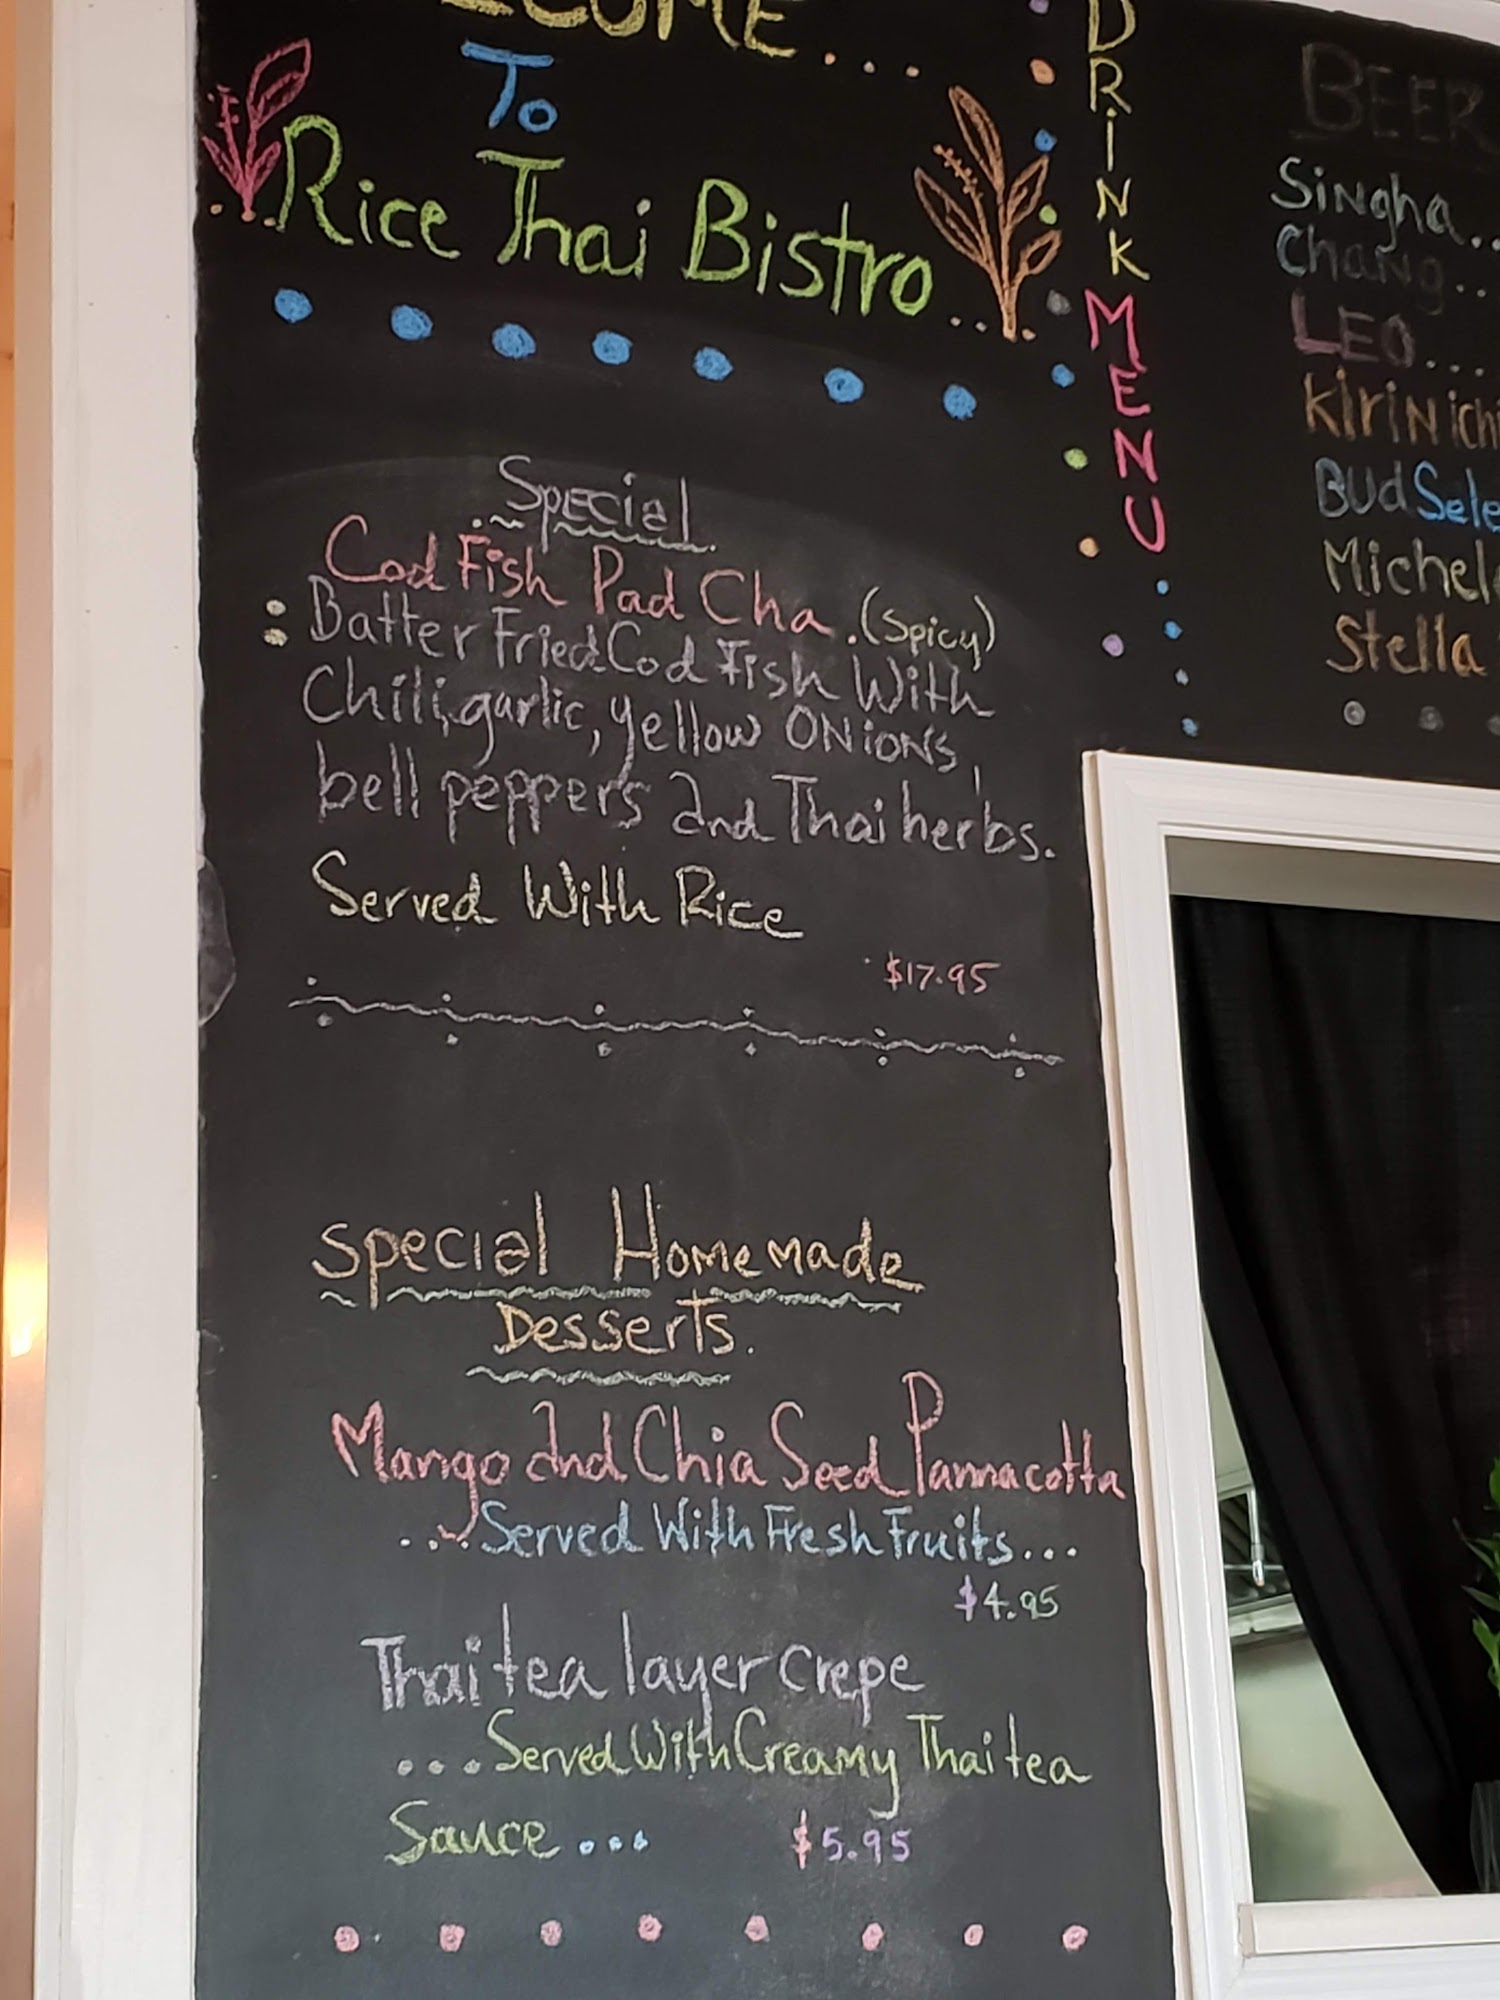 To
Rice Thai Bistro...
Special
Cod Fish Pad Cha. (Spicy)
: Batter Fried Cod Fish With
Chili, garlic, yellow ONiONS,
bell peppers and Thai herbs.
Served With Rice
$17.95
Special Homemade
Desserts.
Mango and Chia Seed Pannacotta
...Served With Fresh Fruits...
$4.95
Thai tea layer crepe
...Served With Creamy Thai tea
Sauce... $5.95
DRiNK MENU
BEER
Singha..
Chang..
LEO....
KiriN ichi
Bud Sele
Michel
Stella